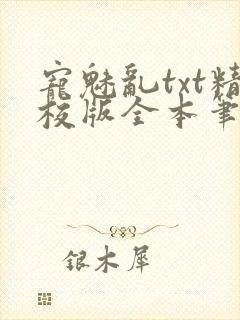 寵魅亂txt精
校版全本筆
銀木犀